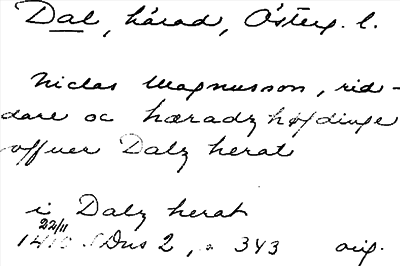 Dal, härad, Österg. l.
Niclas Magnusson, rid-
dare oc hæradzhøfdinge
offuer Dalz herat
i Dalz herat
22/11
1410 SDns 2, s. 343 orig.